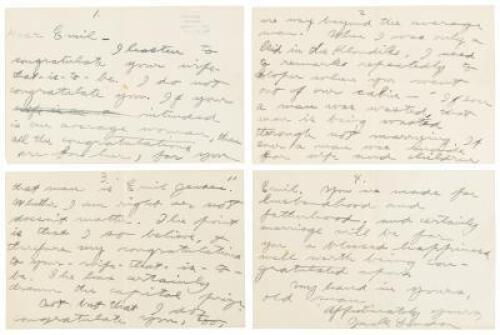 1.
Dear Emil —
I hasten to
congratulate your wife-
that-is-to-be. I do not
congratulate you. If your
intended
is an average woman, then
all the congratulations
are for her, for you
2
are way beyond the average
man. When I was only a
kid in the Klondike, I used
to remark repeatedly to
when you went
out of our cabin — "If ever
a man was wasted, that
man is being wasted
through not marrying. If
ever a man was
for wife and children
3.
that man is Emil Jensen."
Whether I am right or not
doesn't matter. The point
is that I so believe, &
therefore my congratulations
to your-wife-that-is-to-
be. She has certainly
drawn the capital prize.
Not but that I do
congratulate you, too,
4.
Emil. You're made for
husbandhood and
fatherhood, and certainly
marriage will be for
you a blessed happiness
well worth being con-
gratulated upon.
My hand in yours,
old man.
Affectionately yours,
Jack London